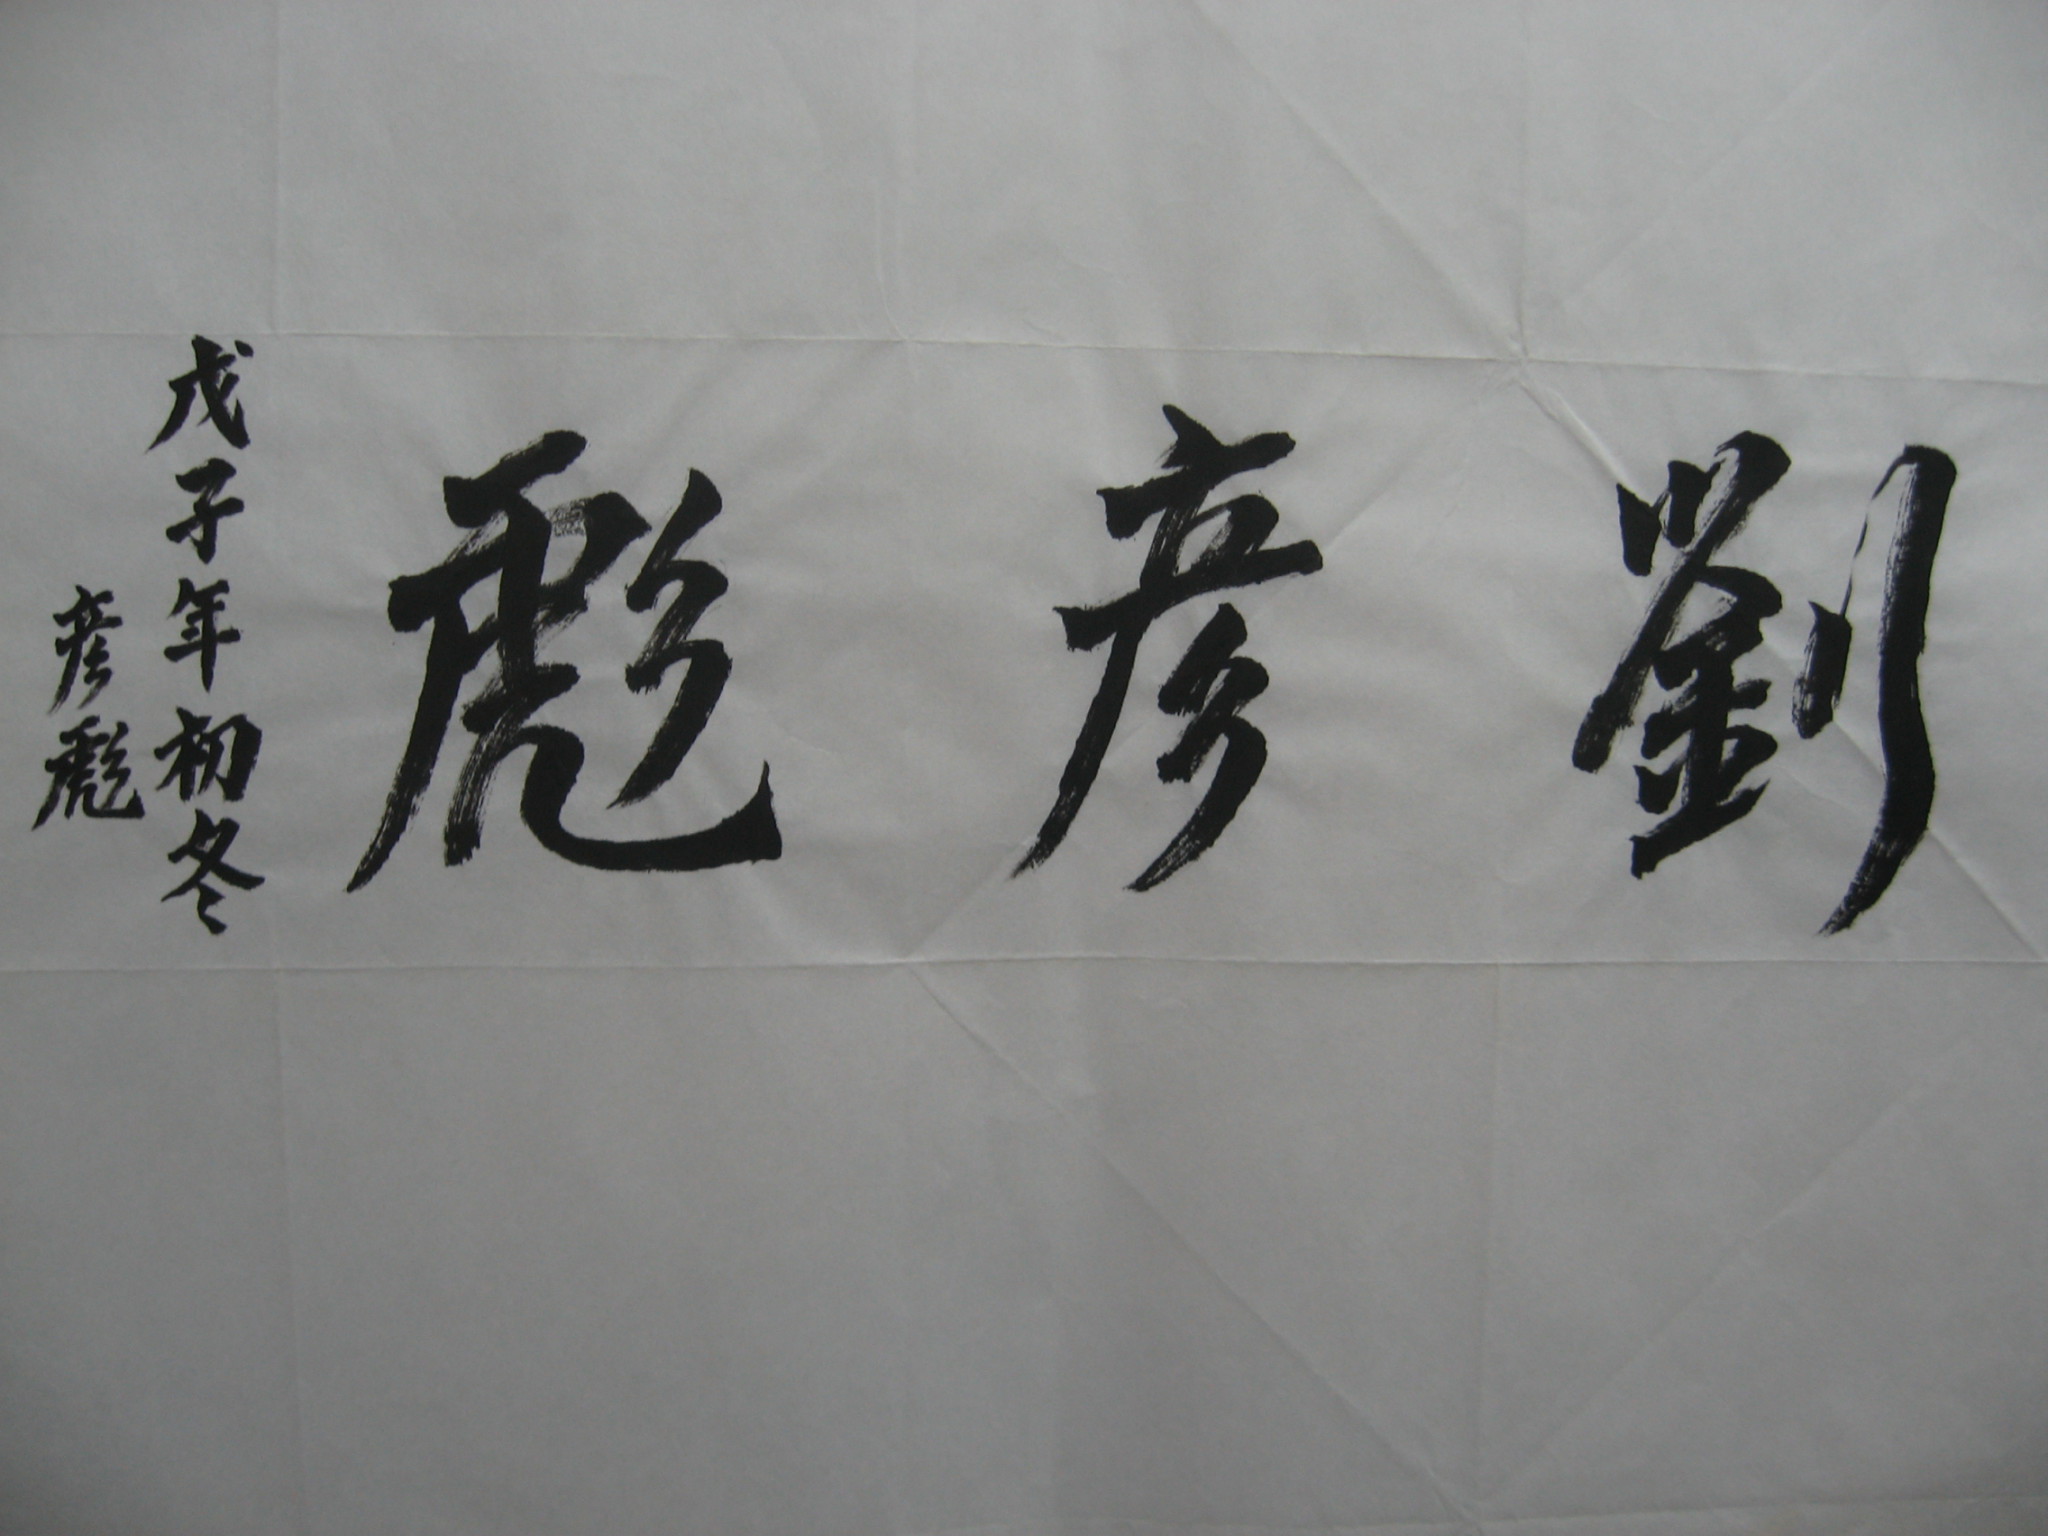 劉彦彪
戊子年初冬
彦彪